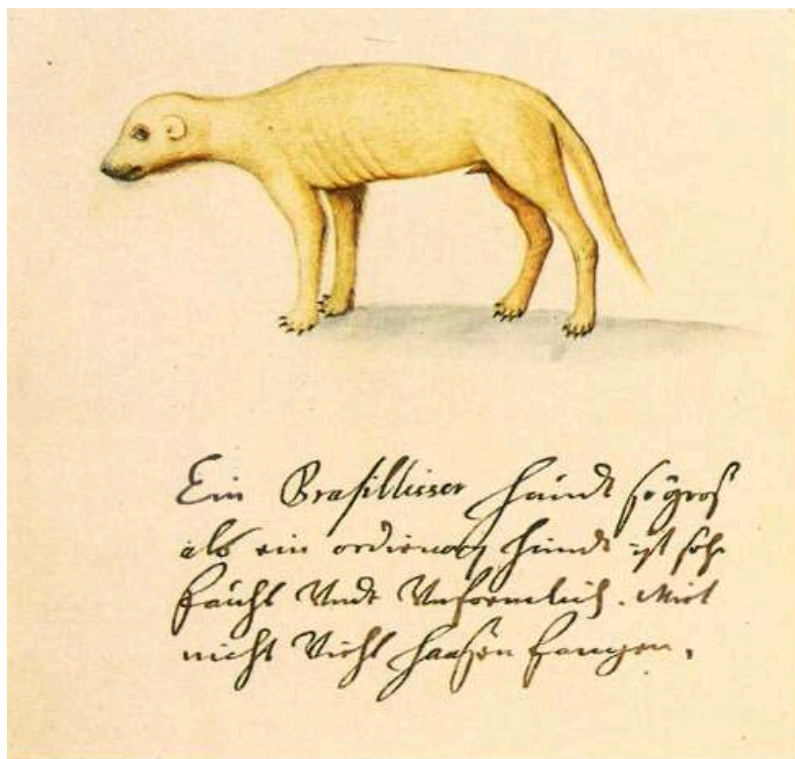 Ein Brasillisser Hundt so groß
als ein ordienarj Hundt ist sehr
fauhl Vndt Vnformlich. Mirt
nicht Viehl haaßen fangen.